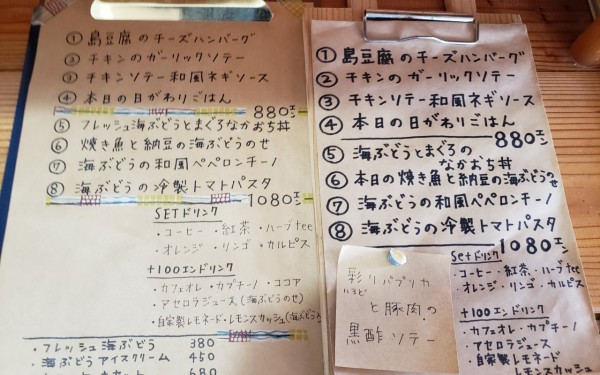 ① 島豆腐のチーズハンバーグ
② チキンのガーリックソテー
③ チキンソテー和風ネギソース
④ 本日の日がわりごはん
880エン
⑤ フレッシュ海ぶどうとまぐろなかおち丼
⑥ 焼き魚と納豆の海ぶどうのせ
⑦ 海ぶどうの和風ペペロンチーノ
⑧ 海ぶどうの冷製トマトパスタ
1080エン
SETドリンク
・コーヒー ・紅茶 ・ハーブtee
・オレンジ ・リンゴ ・カルピス
+100エンドリンク
・カフェオレ ・カプチーノ ・ココア
・アセロラジュース(海ぶどうのせ)
・自家製レモネード・レモンスカッシュ(海ぶどう入)
・フレッシュ海ぶどう 380
・海ぶどうアイスクリーム 450
680
① 島豆腐のチーズハンバーグ
② チキンのガーリックソテー
③ チキンソテー和風ネギソース
④ 本日の日がわりごはん
880エン
⑤ 海ぶどうとまぐろの
なかおち丼
⑥ 本日の焼き魚と納豆の海ぶどうのせ
⑦ 海ぶどうの和風ペペロンチーノ
⑧ 海ぶどうの冷製トマトパスタ
1080エン
Setドリンク
・コーヒー ・紅茶 ・ハーブtee
・オレンジ ・リンゴ ・カルピス
+100エンドリンク
・カフェオレ ・カプチーノ
・アセロラジュース
・自家製レモネード
レモンスカッシュ
彩りパプリカ
いろど
と豚肉の
黒酢ソテー